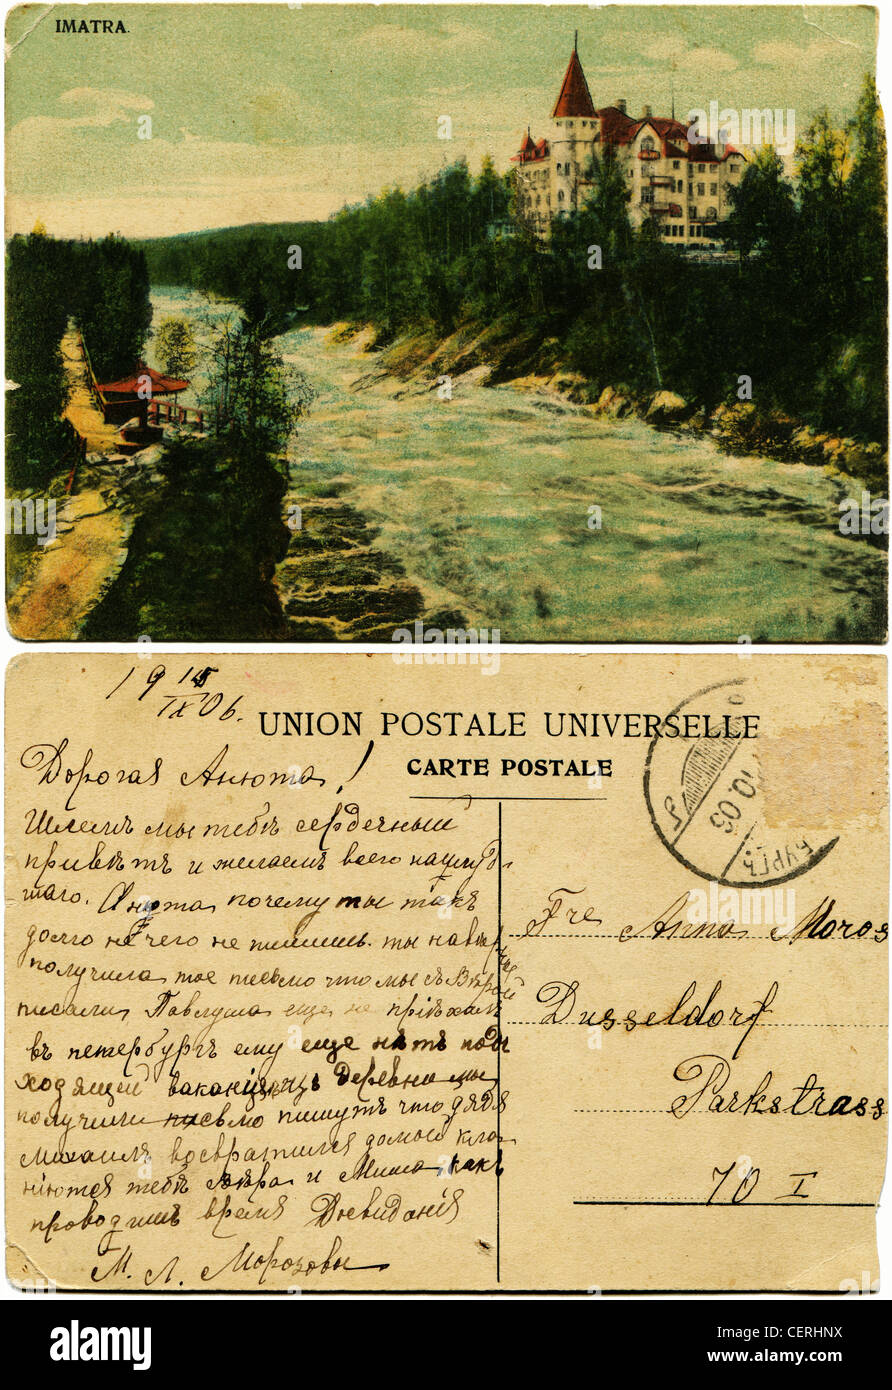 IMATRA.
19 15/IX 06.
UNION POSTALE UNIVERSELLE
CARTE POSTALE
Дорогая Анюта!
Шлемъ мы тебѣ сердечный
привѣтъ и желаемъ всего наилуч
шаго. Анюта почему ты такъ
долго не чего не пишишь. ты навѣр
получила тое письмо что мы с Вѣрой
писали Павлуша еще не пріѣхалъ
въ петербургъ ему еще нѣтъ подъ
ходящей ваканціи изъ деревни мы
получили письмо пишутъ что дядя
Михаилъ возвратился домой кла
ніются тебѣ Вѣра и Миша какъ
проводишь время Досвиданія
М. Л. Морозовы
10.06
БУРГЪ
Fre Anna Moros
Dusseldorf
Parkstrass
70 I
alamy
Image ID: CERHNX
www.alamy.com